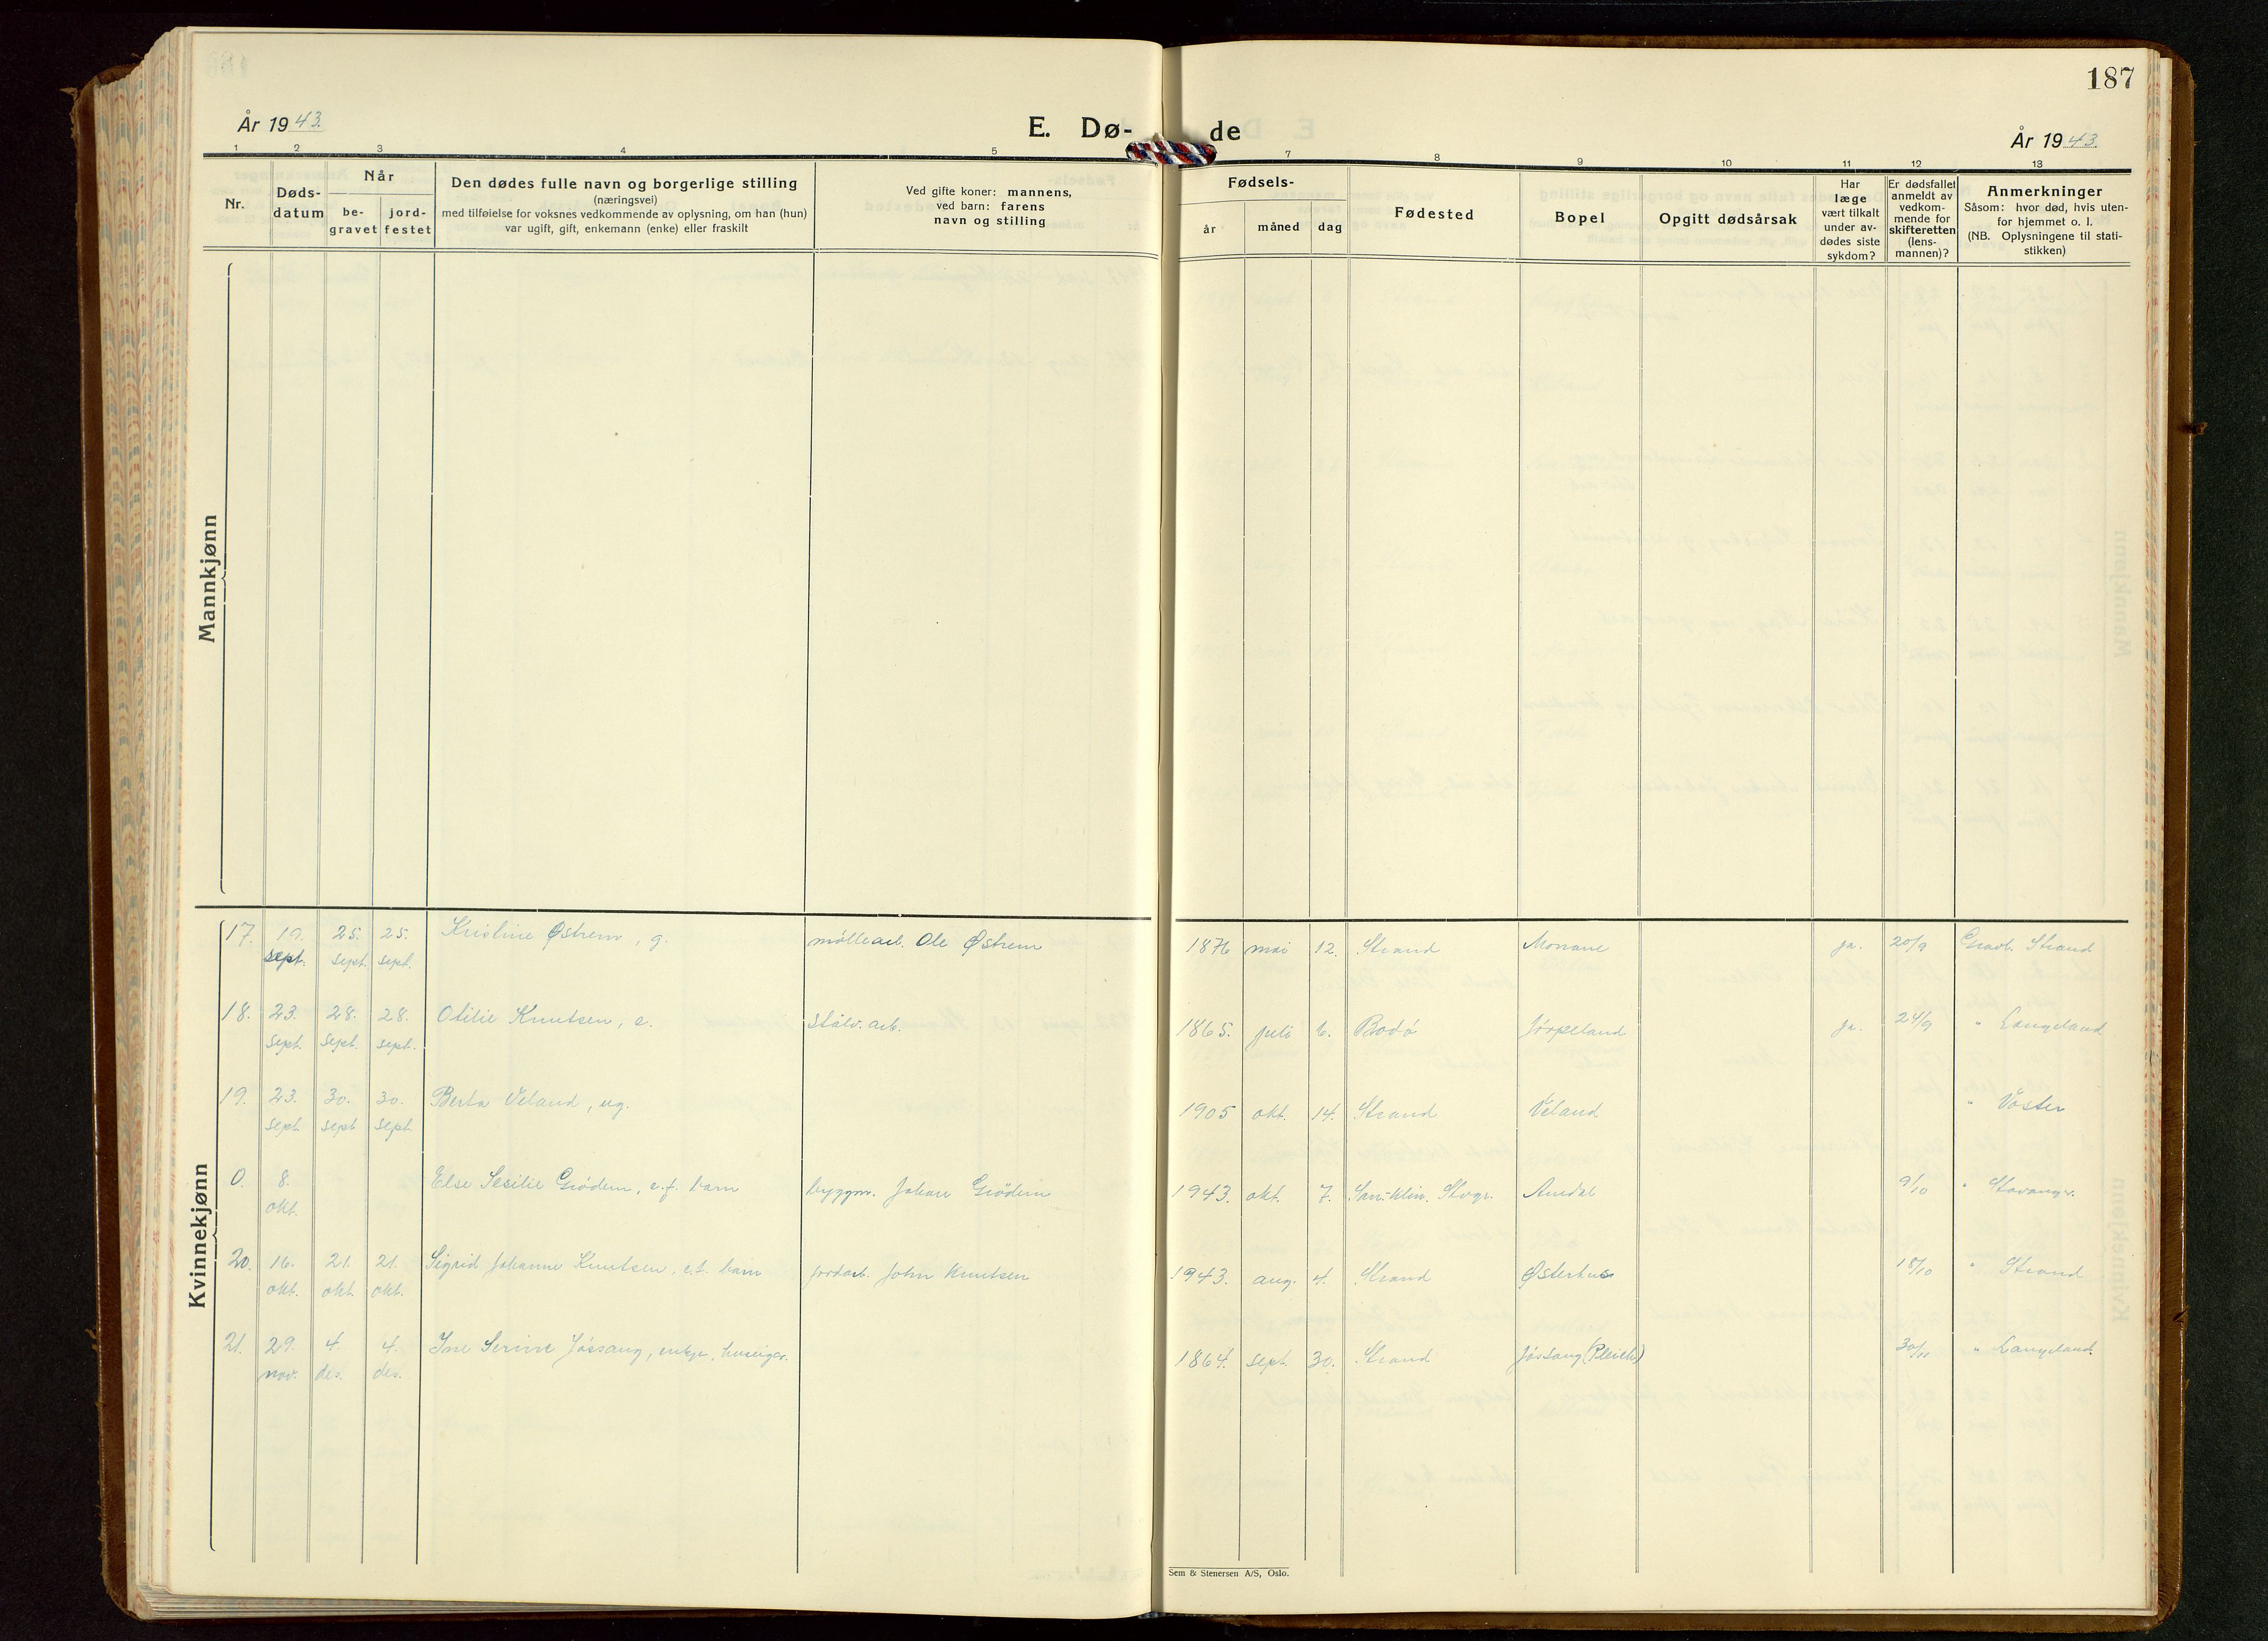 187
År 1943.
E. Dø-
de
År 1943.
1 2 3 4 5 7 8 9 10 11 12 13
Nr.
Døds-
datum
Når
be-
gravet
jord-
festet
Den dødes fulle navn og borgerlige stilling
(næringsvei)
med tilføielse for voksnes vedkommende av oplysning, om han (hun)
var ugift, gift, enkemann (enke) eller fraskilt
Ved gifte koner: mannens,
ved barn: farens
navn og stilling
Fødsels-
år
måned
dag
Fødested
Bopel
Opgitt dødsårsak
Har
læge
vært tilkalt
under av-
dødes siste
sykdom?
Er dødsfallet
anmeldt av
vedkom-
mende for
skifteretten
(lens-
mannen)?
Anmerkninger
Såsom: hvor død, hvis uten-
for hjemmet o. l.
(NB. Oplysningene til stati-
stikken)
Mannkjønn
Kvinnekjønn
17. 19. 25. 25. Kristine Østrem, g. mölleach. Ole Østrem 1876 mai 12. Strand Monane ja. 20/9 Gravl. Strand
sept. sept. sept.
18. 23. 28. 28. Otilie Knutsen, e. Stålv. arb. 1865. juli 6. Bodö Jörpeland ja. 24/9 " Langeland
sept. sept. sept.
19. 23. 30. 30. Berta Veland, ug. 1905 okt. 14. Strand Veland " Voster
sept. sept sept.
0. 8. Else Sesilie Grödem, e.f. barn byggm. Johan Grödem 1943. okt. 7. San.klin. Stvgr. Amdal 9/10 " Stavangr.
okt.
20. 16. 21. 21. Sigrid Johanne Knutsen, e.f. barn jordarb. John Knutsen 1943. aug. 4. Strand Østerhus 18/10 " Strand
okt. okt. okt.
21. 29. 4. 4. Ine Serine Jössang, enkje, huseigar. 1864. sept. 30. Strand Jössang 30/11 " Langeland.
nov. des. des.
Sem & Stenersen A/S, Oslo.